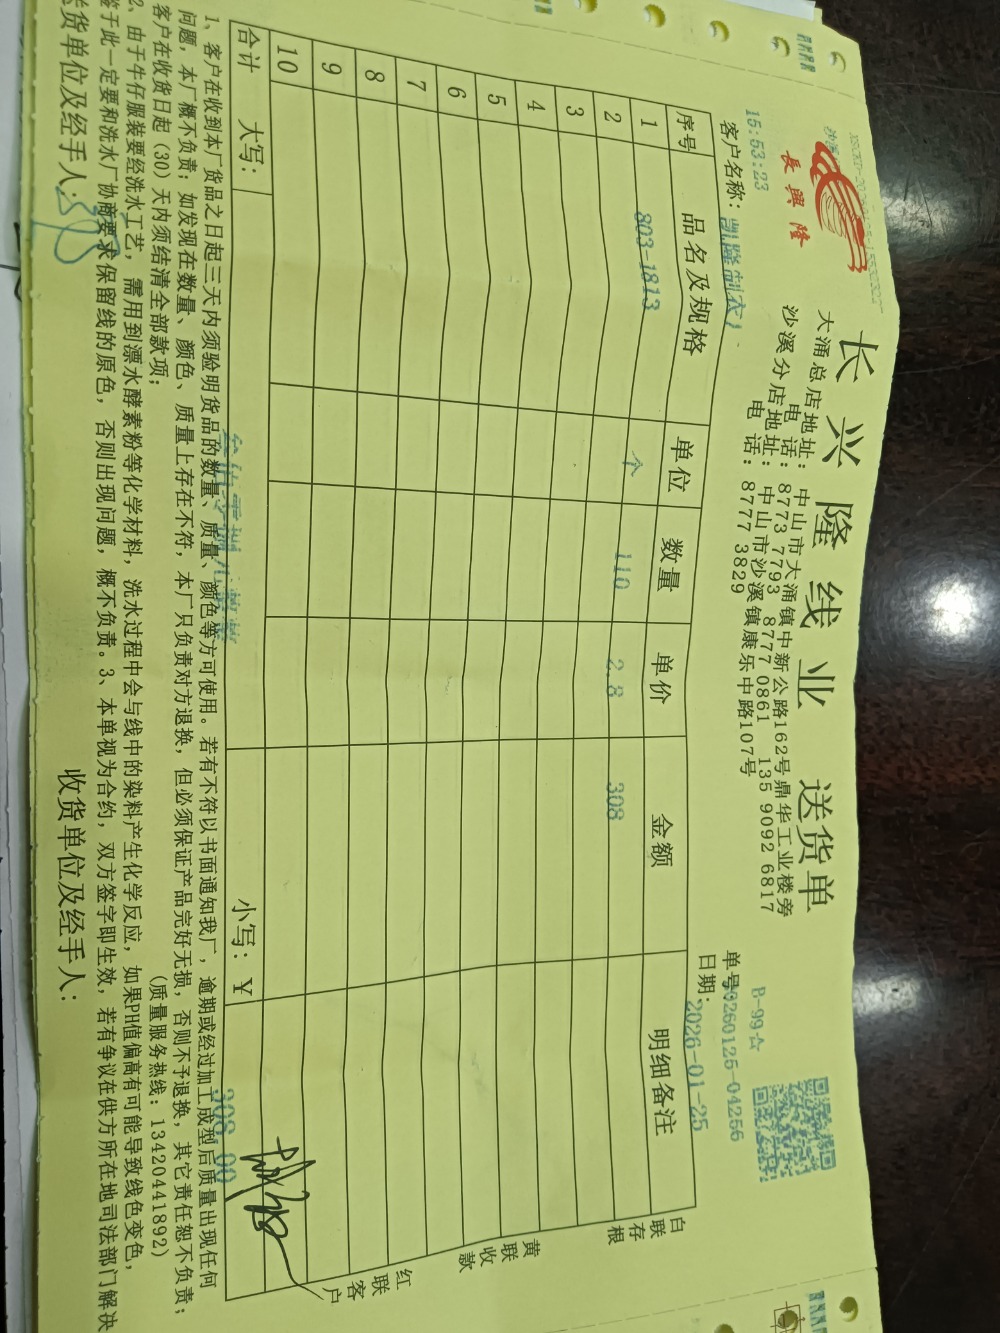 長興隆
长兴隆线业 送货单
大涌总店地址：中山市大涌镇中新公路162号鼎华工业楼旁
电 话：8773 7793 8777 0861 135 9092 6817
沙溪分店地址：中山市沙溪镇康乐中路107号
电 话：8777 3829
B-99
15:53:23
单号:20260125-04256
客户名称：凯隆制衣
日期：2026-01-25
序号 品名及规格 单位 数量 单价 金额 明细备注
1 803-1813 个 110 2.8 308
2
3
4
5
6
7
8
9
10
合计 大写： 小写：¥ 308.00
白联存根
黄联收款
红联客户
1、客户在收到本厂货品之日起三天内须验明货品的数量、质量、颜色等方可使用。若有不符以书面通知我厂，逾期或经过加工成型后质量出现任何
问题，本厂概不负责；如发现在数量、颜色、质量上存在不符，本厂只负责对方退换，但必须保证产品完好无损，否则不予退换，其它责任恕不负责；
客户在收货日起（30）天内须结清全部款项； （质量服务热线：13420441892）
2、由于牛仔服装要经洗水工艺，需用到漂水酵素粉等化学材料，洗水过程中会与线中的染料产生化学反应，如果PH值偏高有可能导致线色变色，
鉴于此一定要和洗水厂协商要求保留线的原色，否则出现问题，概不负责。3、本单视为合约，双方签字即生效，若有争议在供方所在地司法部门解决
送货单位及经手人： 收货单位及经手人：